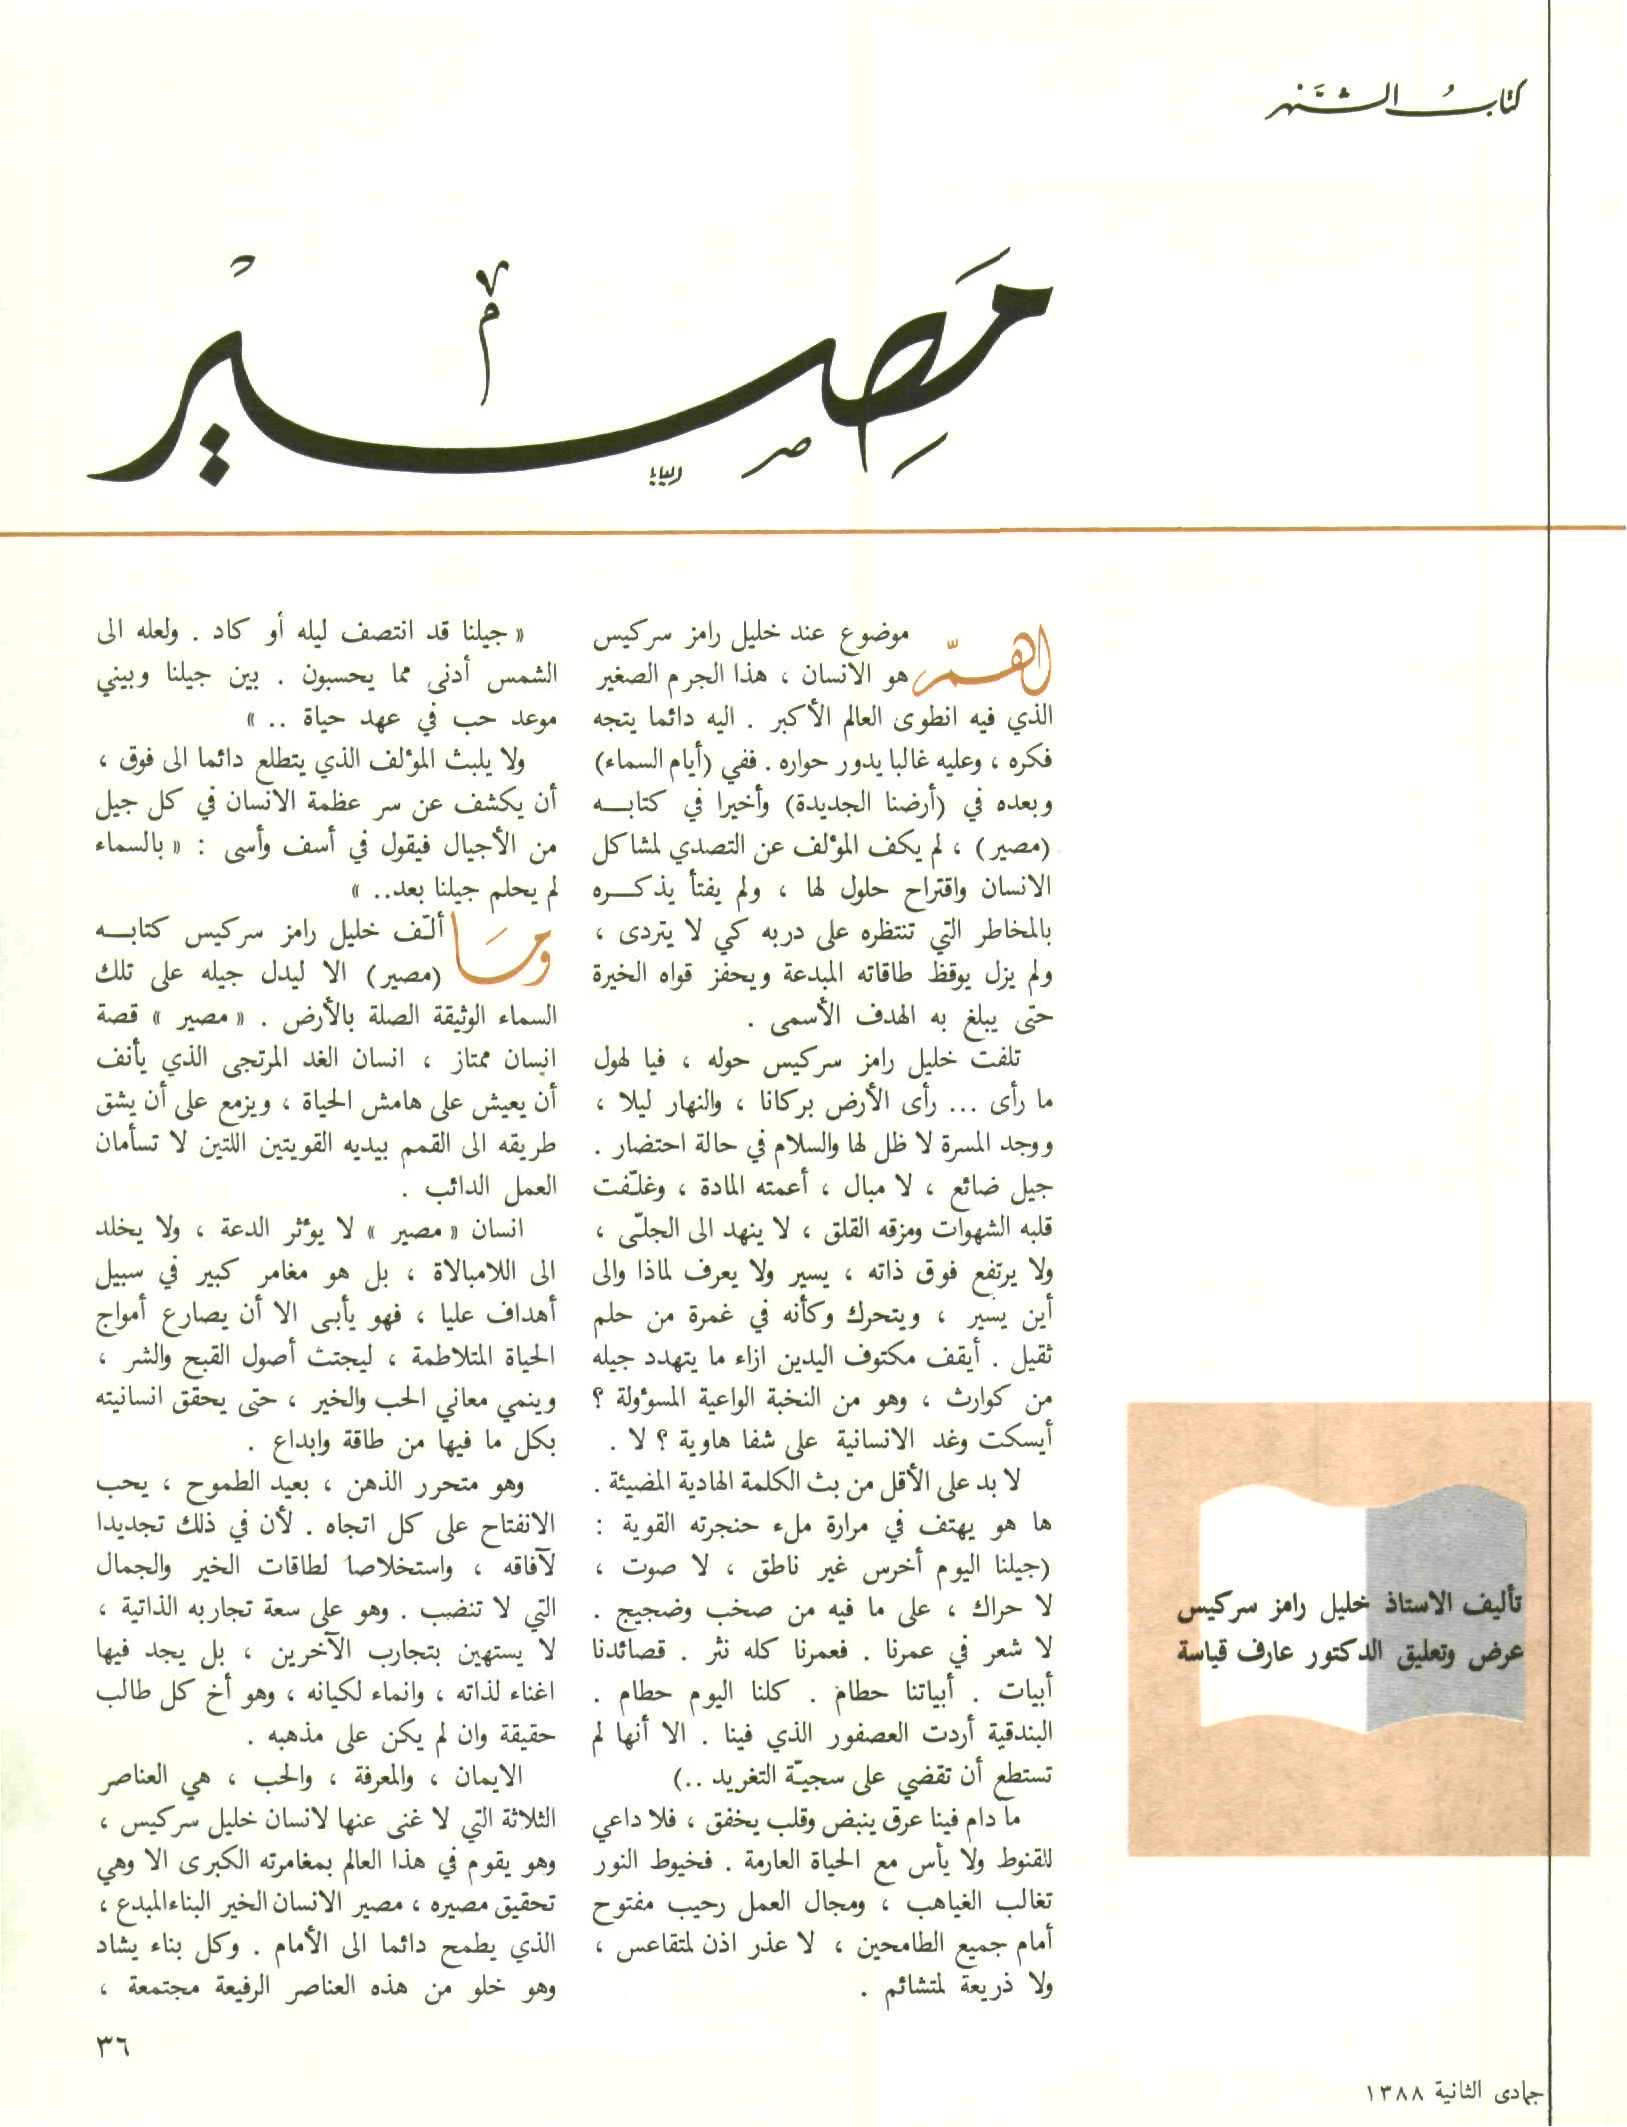 كتاب الشهر
مصير
تأليف الاستاذ خليل رامز سركيس
عرض وتعليق الدكتور عارف قياسة
اهمّ موضوع عند خليل رامز سركيس
هو الانسان ، هذا الجرم الصغير
الذي فيه انطوى العالم الأكبر . اليه دائما يتجه
فكره ، وعليه غالبا يدور حواره . ففي (أيام السماء)
وبعده في (أرضنا الجديدة) وأخيرا في كتابه
(مصير) ، لم يكف المؤلف عن التصدي لمشاكل
الانسان واقتراح حلول لها ، ولم يفتأ يذكره
بالمخاطر التي تنتظره على دربه كي لا يتردى ،
ولم يزل يوقظ طاقاته المبدعة ويحفز قواه الخيرة
حتى يبلغ به الهدف الأسمى .
تلفت خليل رامز سركيس حوله ، فيا لهول
ما رأى ... رأى الأرض بركانا ، والنهار ليلا ،
ووجد المسرة لا ظل لها والسلام في حالة احتضار .
جيل ضائع ، لا مبال ، أعمته المادة ، وغلّفت
قلبه الشهوات ومزقه القلق ، لا ينهد الى الجلّى ،
ولا يرتفع فوق ذاته ، يسير ولا يعرف لماذا والى
أين يسير ، ويتحرك وكأنه في غمرة من حلم
ثقيل . أيقف مكتوف اليدين ازاء ما يتهدد جيله
من كوارث ، وهو من النخبة الواعية المسؤولة ؟
أيسكت وغد الانسانية على شفا هاوية ؟ لا .
لا بد على الأقل من بث الكلمة الهادية المضيئة .
ها هو يهتف في مرارة ملء حنجرته القوية :
(جيلنا اليوم أخرس غير ناطق ، لا صوت ،
لا حراك ، على ما فيه من صخب وضجيج .
لا شعر في عمرنا . فعمرنا كله نثر . قصائدنا
أبيات . أبياتنا حطام . كلنا اليوم حطام .
البندقية أردت العصفور الذي فينا . الا أنها لم
تستطع أن تقضي على سجيّة التغريد ..)
ما دام فينا عرق ينبض وقلب يخفق ، فلا داعي
للقنوط ولا يأس مع الحياة العارمة . فخيوط النور
تغالب الغياهب ، ومجال العمل رحيب مفتوح
أمام جميع الطامحين ، لا عذر اذن لمتقاعس ،
ولا ذريعة لمتشائم .
« جيلنا قد انتصف ليله أو كاد . ولعله الى
الشمس أدنى مما يحسبون . بين جيلنا وبيني
موعد حب في عهد حياة .. »
ولا يلبث المؤلف الذي يتطلع دائما الى فوق ،
أن يكشف عن سر عظمة الانسان في كل جيل
من الأجيال فيقول في أسف وأسى : « بالسماء
لم يحلم جيلنا بعد.. »
ومَا ألّف خليل رامز سركيس كتابه
(مصير) الا ليدل جيله على تلك
السماء الوثيقة الصلة بالأرض . « مصير » قصة
انسان ممتاز ، انسان الغد المرتجى الذي يأنف
أن يعيش على هامش الحياة ، ويزمع على أن يشق
طريقه الى القمم بيديه القويتين اللتين لا تسأمان
العمل الدائب .
انسان « مصير » لا يؤثر الدعة ، ولا يخلد
الى اللامبالاة ، بل هو مغامر كبير في سبيل
أهداف عليا ، فهو يأبى الا أن يصارع أمواج
الحياة المتلاطمة ، ليجتث أصول القبح والشر ،
وينمي معاني الحب والخير ، حتى يحقق انسانيته
بكل ما فيها من طاقة وابداع .
وهو متحرر الذهن ، بعيد الطموح ، يحب
الانفتاح على كل اتجاه . لأن في ذلك تجديدا
لآفاقه ، واستخلاصا لطاقات الخير والجمال
التي لا تنضب . وهو على سعة تجاربه الذاتية ،
لا يستهين بتجارب الآخرين ، بل يجد فيها
اغناء لذاته ، وانماء لكيانه ، وهو أخ كل طالب
حقيقة وان لم يكن على مذهبه .
الايمان ، والمعرفة ، والحب ، هي العناصر
الثلاثة التي لا غنى عنها لانسان خليل سركيس ،
وهو يقوم في هذا العالم بمغامرته الكبرى الا وهي
تحقيق مصيره ، مصير الانسان الخير البناء المبدع ،
الذي يطمح دائما الى الأمام . وكل بناء يشاد
وهو خلو من هذه العناصر الرفيعة مجتمعة ،
٣٦
جمادى الثانية ١٣٨٨